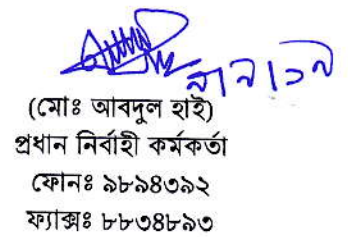 (মোঃ আবদুল হাই)
প্রধান নির্বাহী কর্মকর্তা
ফোনঃ ৯৮৯৪৩৯২
ফ্যাক্সঃ ৮৮৩৪৮৯৩